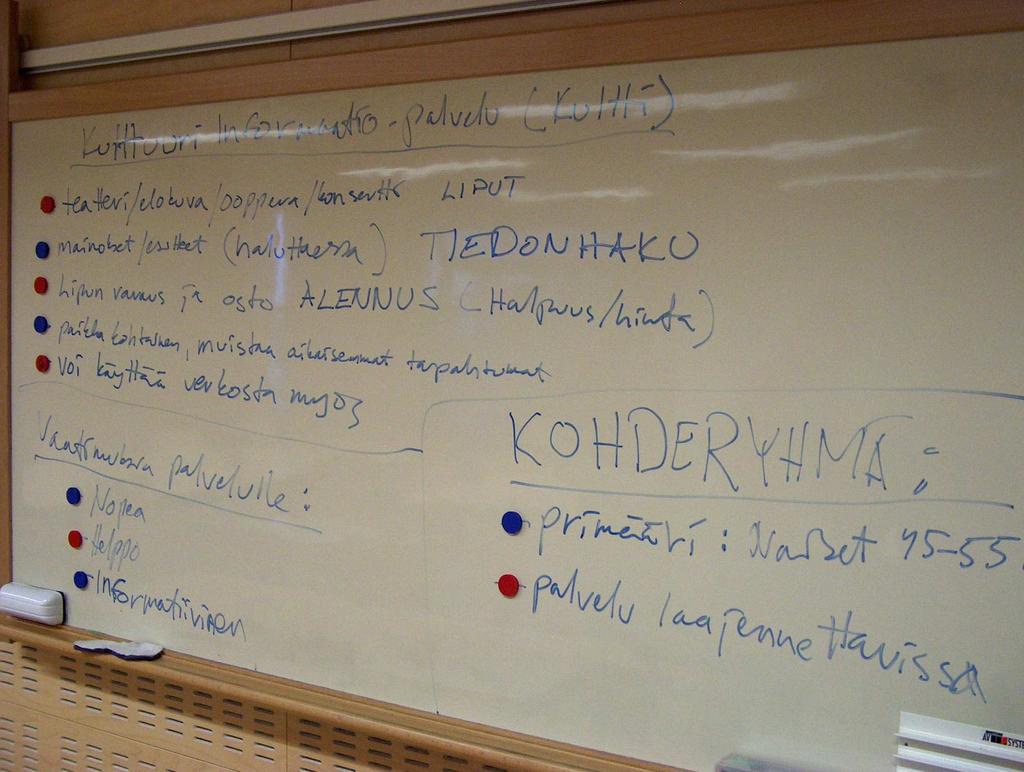 Kulttuuri Informaatio-palvelu (Kultti)
teatteri/elokuva/ooppera/konsertti LIPUT
mainokset/esitteet (haluttaessa) TIEDONHAKU
lipun varaus ja osto ALENNUS (Halpuus/hinta)
paikkakohtainen, muistaa aikaisemmat tapahtumat
voi käyttää verkosta myös
Vaatimuksia palvelulle:
Nopea
Helppo
Informatiivinen
KOHDERYHMÄ:
primääri: Naiset 45-55
palvelu laajennettavissa
AV SYSTE